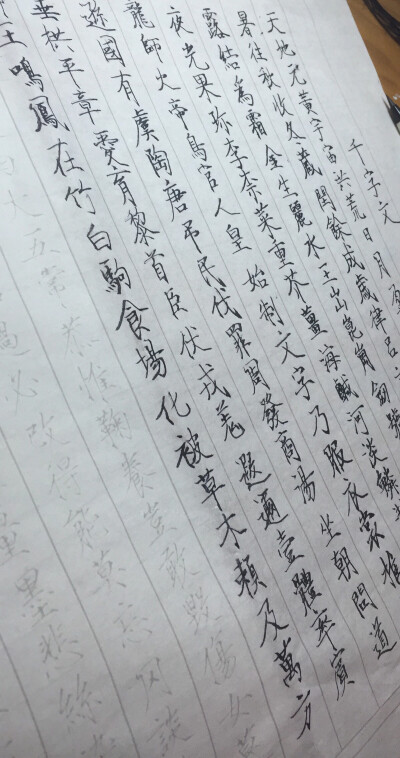 千字文
天地元黃宇宙洪荒日月盈
暑往秋收冬藏閏餘成歲律呂
露結為霜金生麗水玉出崑岡劍號
夜光果珍李柰菜重芥薑海鹹河淡鱗
龍師火帝鳥官人皇始制文字乃服衣裳推
遜國有虞陶唐吊民伐罪周發商湯坐朝問道
垂拱平章愛育黎首臣伏戎羌遐邇壹體率賓
王鳴鳳在竹白駒食場化被草木賴及萬方
大五常恭惟鞠養豈敢毀傷女
過必改得能莫忘罔談
量墨悲絲